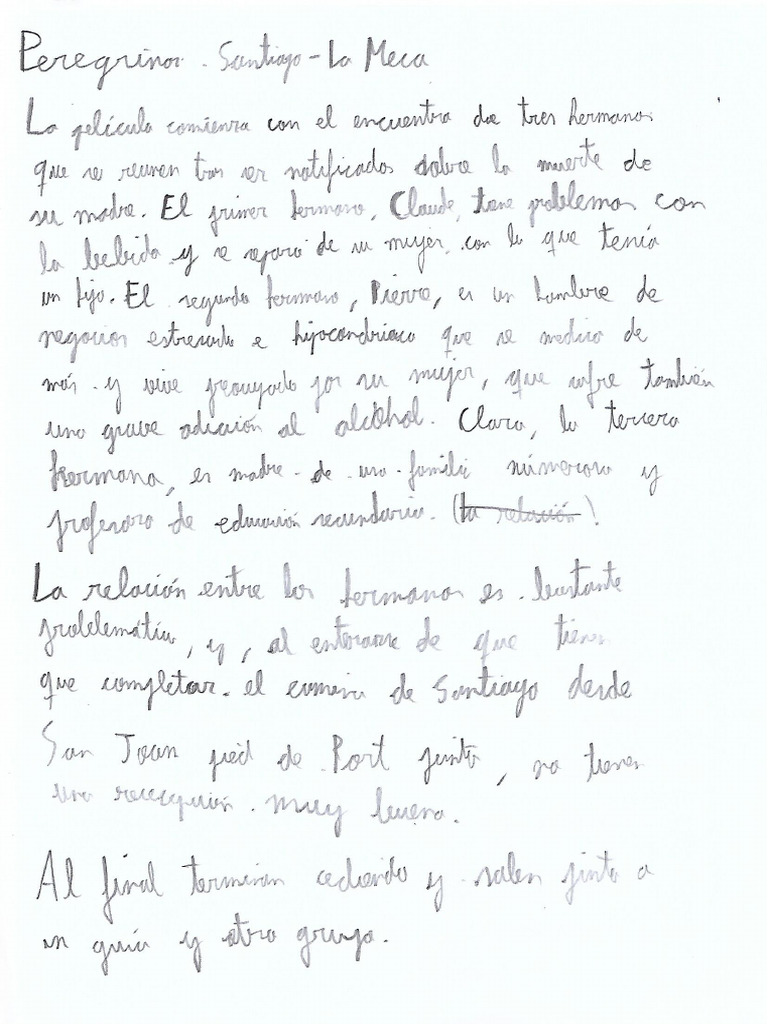 Peregrinos. Santiago - La Meca
La película comienza con el encuentro de tres hermanos
que se reunen tras ser notificados sobre la muerte de
su madre. El primer hermano, Claude, tiene problemas con
la bebida y se separó de su mujer, con la que tenía
un hijo. El segundo hermano, Pierre, es un hombre de
negocios estresado e hipocondriaco que se medica de
más y vive preocupado por su mujer, que sufre también
una grave adicción al alcohol. Clara, la tercera
hermana, es madre de una familia númerosa y
profesora de educación secundaria. (La relación)
La relación entre los hermanos es bastante
problemática, y, al enterarse de que tienen
que completar el camino de Santiago desde
San Joan pied de Port juntos, no tienen
una recepción muy buena.
Al final terminan cediendo y salen junto a
un guía y otro grupo.